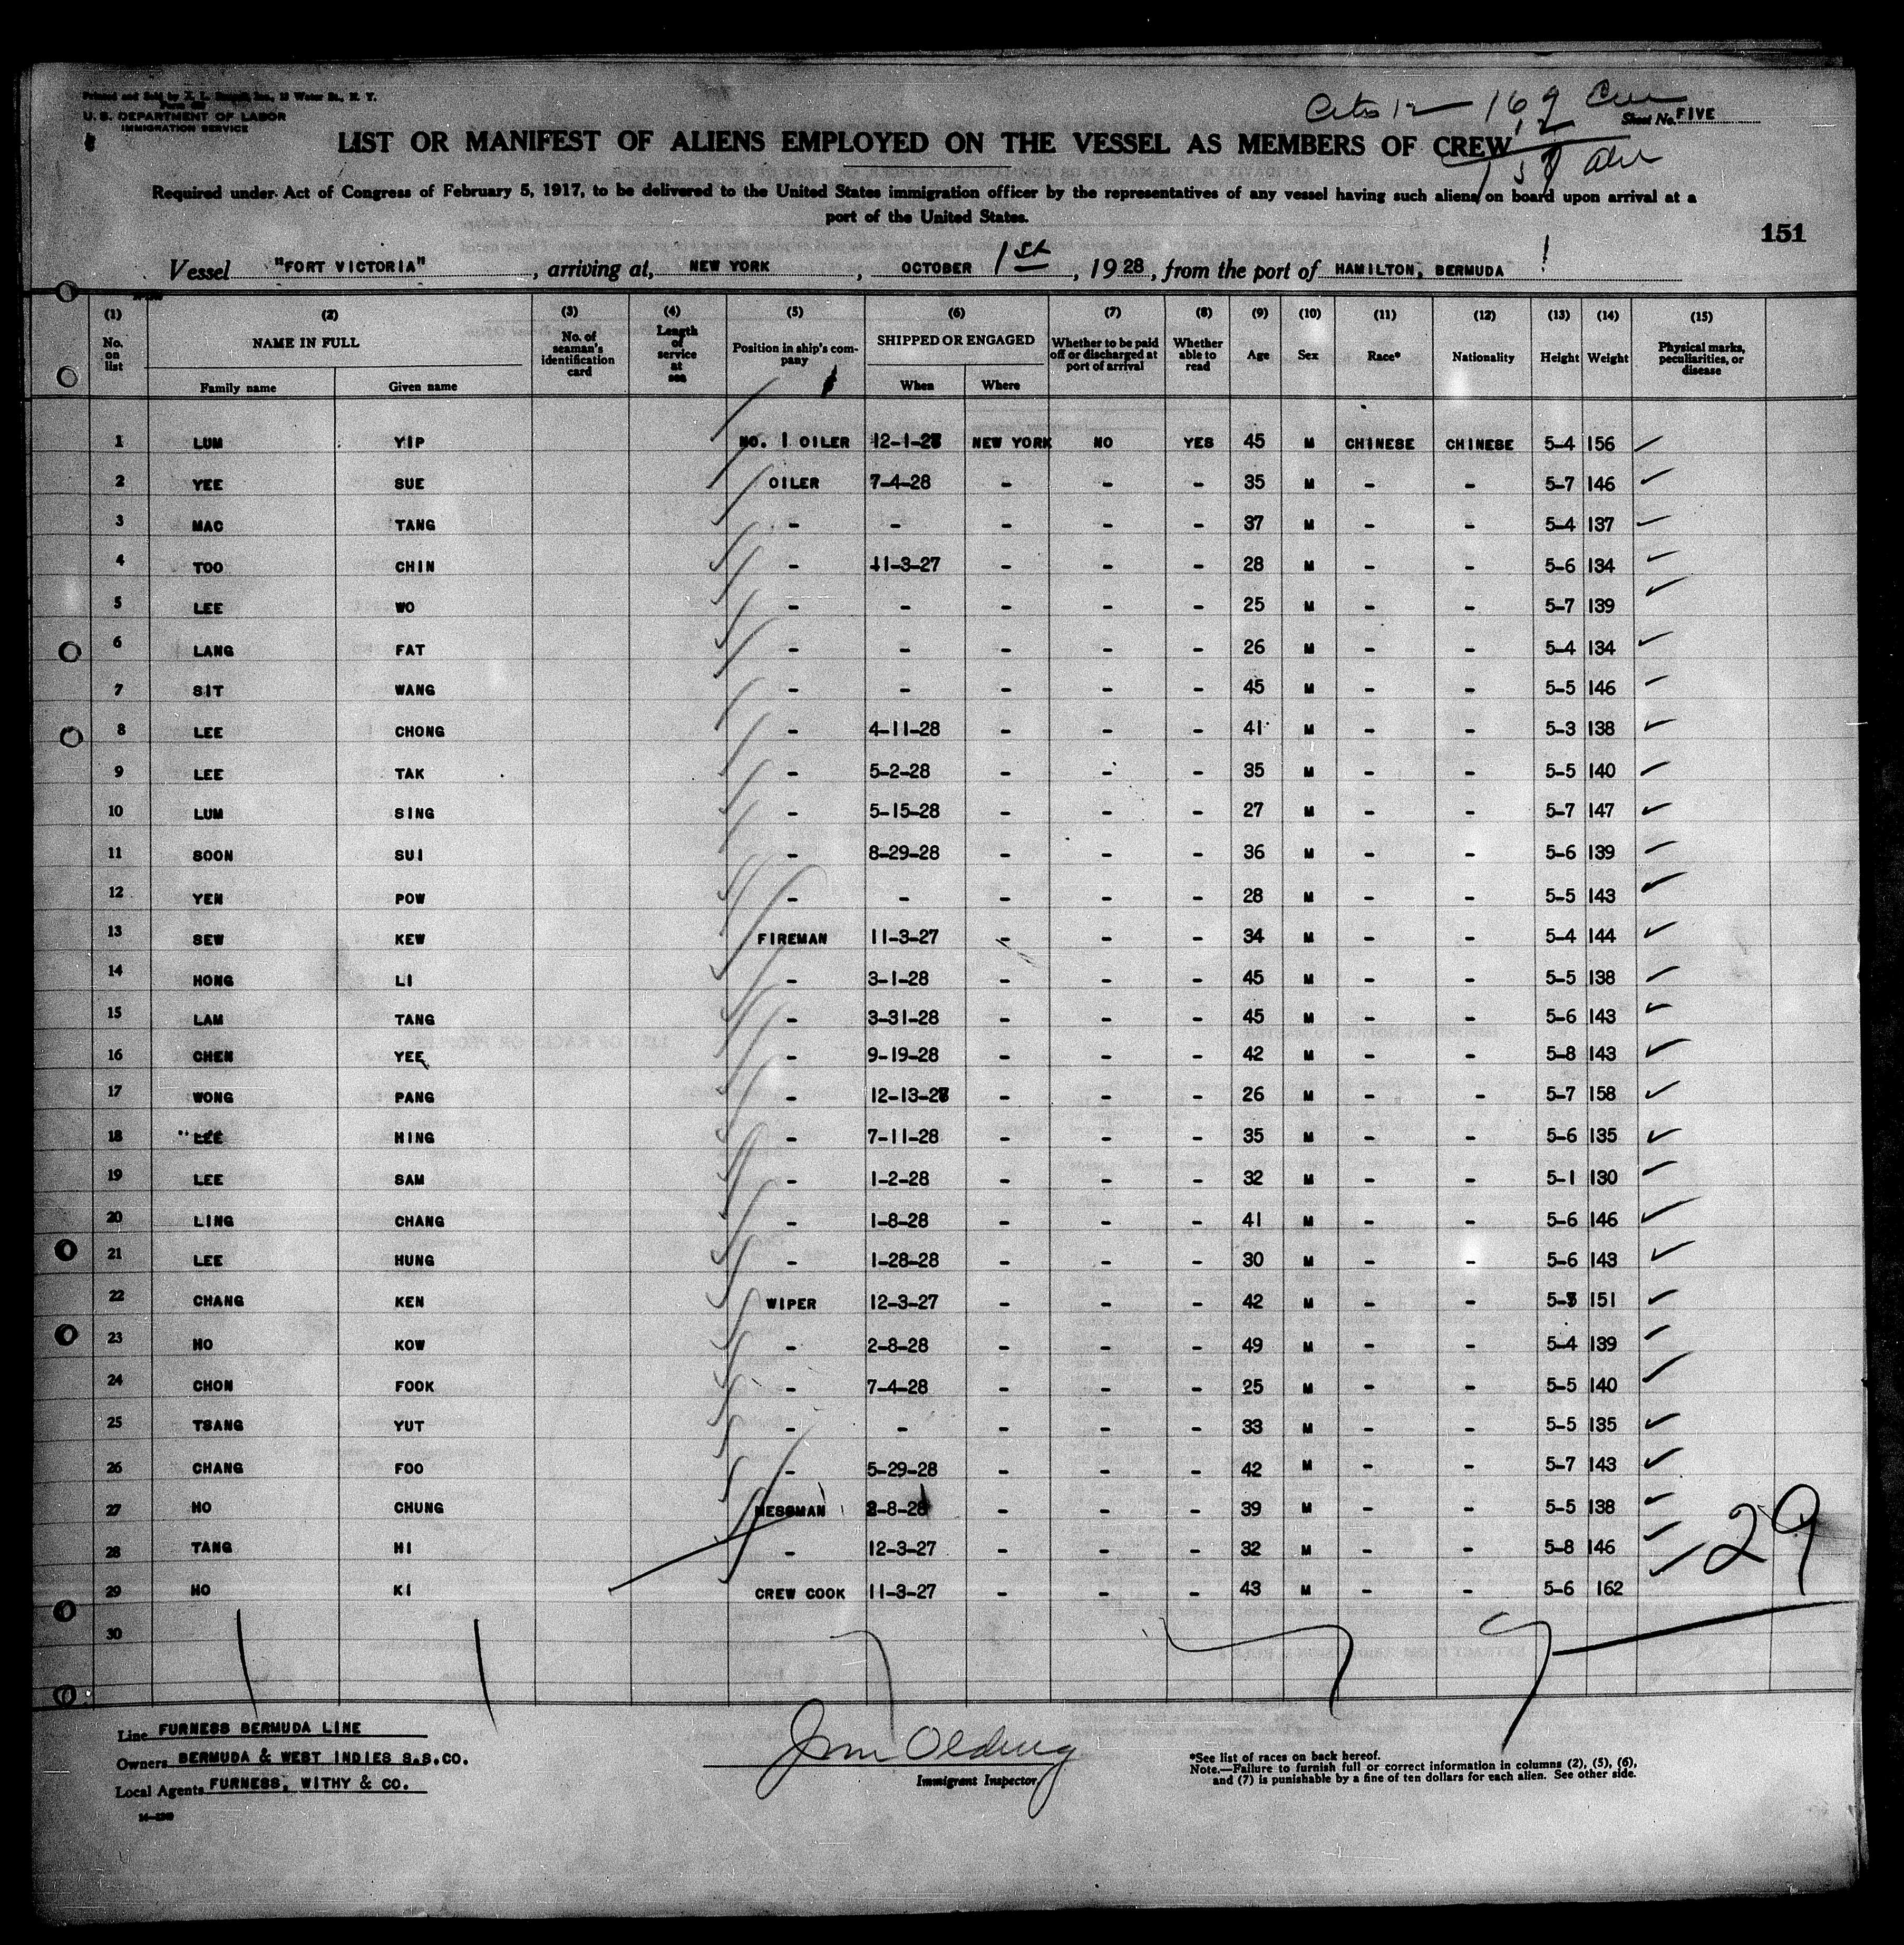 U. S. DEPARTMENT OF LABOR
IMMIGRATION SERVICE
Sheet No. FIVE
LIST OR MANIFEST OF ALIENS EMPLOYED ON THE VESSEL AS MEMBERS OF CREW
Required under Act of Congress of February 5, 1917, to be delivered to the United States immigration officer by the representatives of any vessel having such aliens on board upon arrival at a
port of the United States.
151
Vessel "FORT VICTORIA", arriving at, NEW YORK, OCTOBER 1st, 1928, from the port of HAMILTON, BERMUDA
(1) (2) (3) (4) (5) (6) (7) (8) (9) (10) (11) (12) (13) (14) (15)
No. on list NAME IN FULL Family name Given name No. of seaman's identification card Length of service at sea Position in ship's company SHIPPED OR ENGAGED When Where Whether to be paid off or discharged at port of arrival Whether able to read Age Sex Race* Nationality Height Weight Physical marks, peculiarities, or disease
1 LUM YIP NO. 1 OILER 12-1-27 NEW YORK NO YES 45 M CHINESE CHINESE 5-4 156
2 YEE SUE OILER 7-4-28 - - - 35 M - - 5-7 146
3 MAC TANG - - - - - 37 M - - 5-4 137
4 TOO CHIN - 11-3-27 - - - 28 M - - 5-6 134
5 LEE WO - - - - - 25 M - - 5-7 139
6 LANG FAT - - - - - 26 M - - 5-4 134
7 SIT WANG - - - - - 45 M - - 5-5 146
8 LEE CHONG - 4-11-28 - - - 41 M - - 5-3 138
9 LEE TAK - 5-2-28 - - - 35 M - - 5-5 140
10 LUM SING - 5-15-28 - - - 27 M - - 5-7 147
11 SOON SUI - 8-29-28 - - - 36 M - - 5-6 139
12 YEN POW - - - - - 28 M - - 5-5 143
13 SEW KEW FIREMAN 11-3-27 - - - 34 M - - 5-4 144
14 HONG LI - 3-1-28 - - - 45 M - - 5-5 138
15 LAM TANG - 3-31-28 - - - 45 M - - 5-6 143
16 CHEN YEE - 9-19-28 - - - 42 M - - 5-8 143
17 WONG PANG - 12-13-27 - - - 26 M - - 5-7 158
18 LEE HING - 7-11-28 - - - 35 M - - 5-6 135
19 LEE SAM - 1-2-28 - - - 32 M - - 5-1 130
20 LING CHANG - 1-8-28 - - - 41 M - - 5-6 146
21 LEE HUNG - 1-28-28 - - - 30 M - - 5-6 143
22 CHANG KEN WIPER 12-3-27 - - - 42 M - - 151
23 HO KOW - 2-8-28 - - - 49 M - - 5-4 139
24 CHON FOOK - 7-4-28 - - - 25 M - - 5-5 140
25 TSANG YUT - - - - - 33 M - - 5-5 135
26 CHANG FOO - 5-29-28 - - - 42 M - - 5-7 143
27 HO CHUNG MESSMAN 2-8-28 - - - 39 M - - 5-5 138
28 TANG HI - 12-3-27 - - - 32 M - - 5-8 146
29 HO KI CREW COOK 11-3-27 - - - 43 M - - 5-6 162
29
30
Line FURNESS BERMUDA LINE
Owners BERMUDA & WEST INDIES S.S.CO.
Local Agents FURNESS, WITHY & CO.
Immigrant Inspector
*See list of races on back hereof.
Note.—Failure to furnish full or correct information in columns (2), (5), (6),
and (7) is punishable by a fine of ten dollars for each alien. See other side.